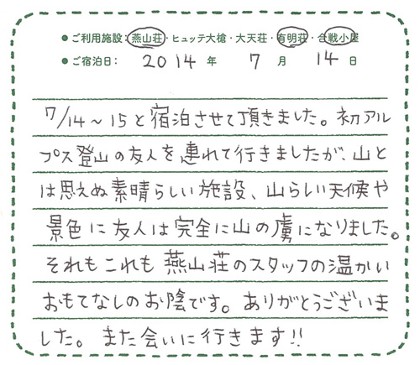 ●ご利用施設：燕山荘・ヒュッテ大槍・大天荘・有明荘・合戦小屋
●ご宿泊日： 2014 年 7 月 14 日
7/14～15と宿泊させて頂きました。初アル
プス登山の友人を連れて行きましたが、山と
は思えぬ素晴らしい施設、山らしい天候や
景色に友人は完全に山の虜になりました。
それもこれも燕山荘のスタッフの温かい
おもてなしのお陰です。ありがとうございま
した。また会いに行きます!!